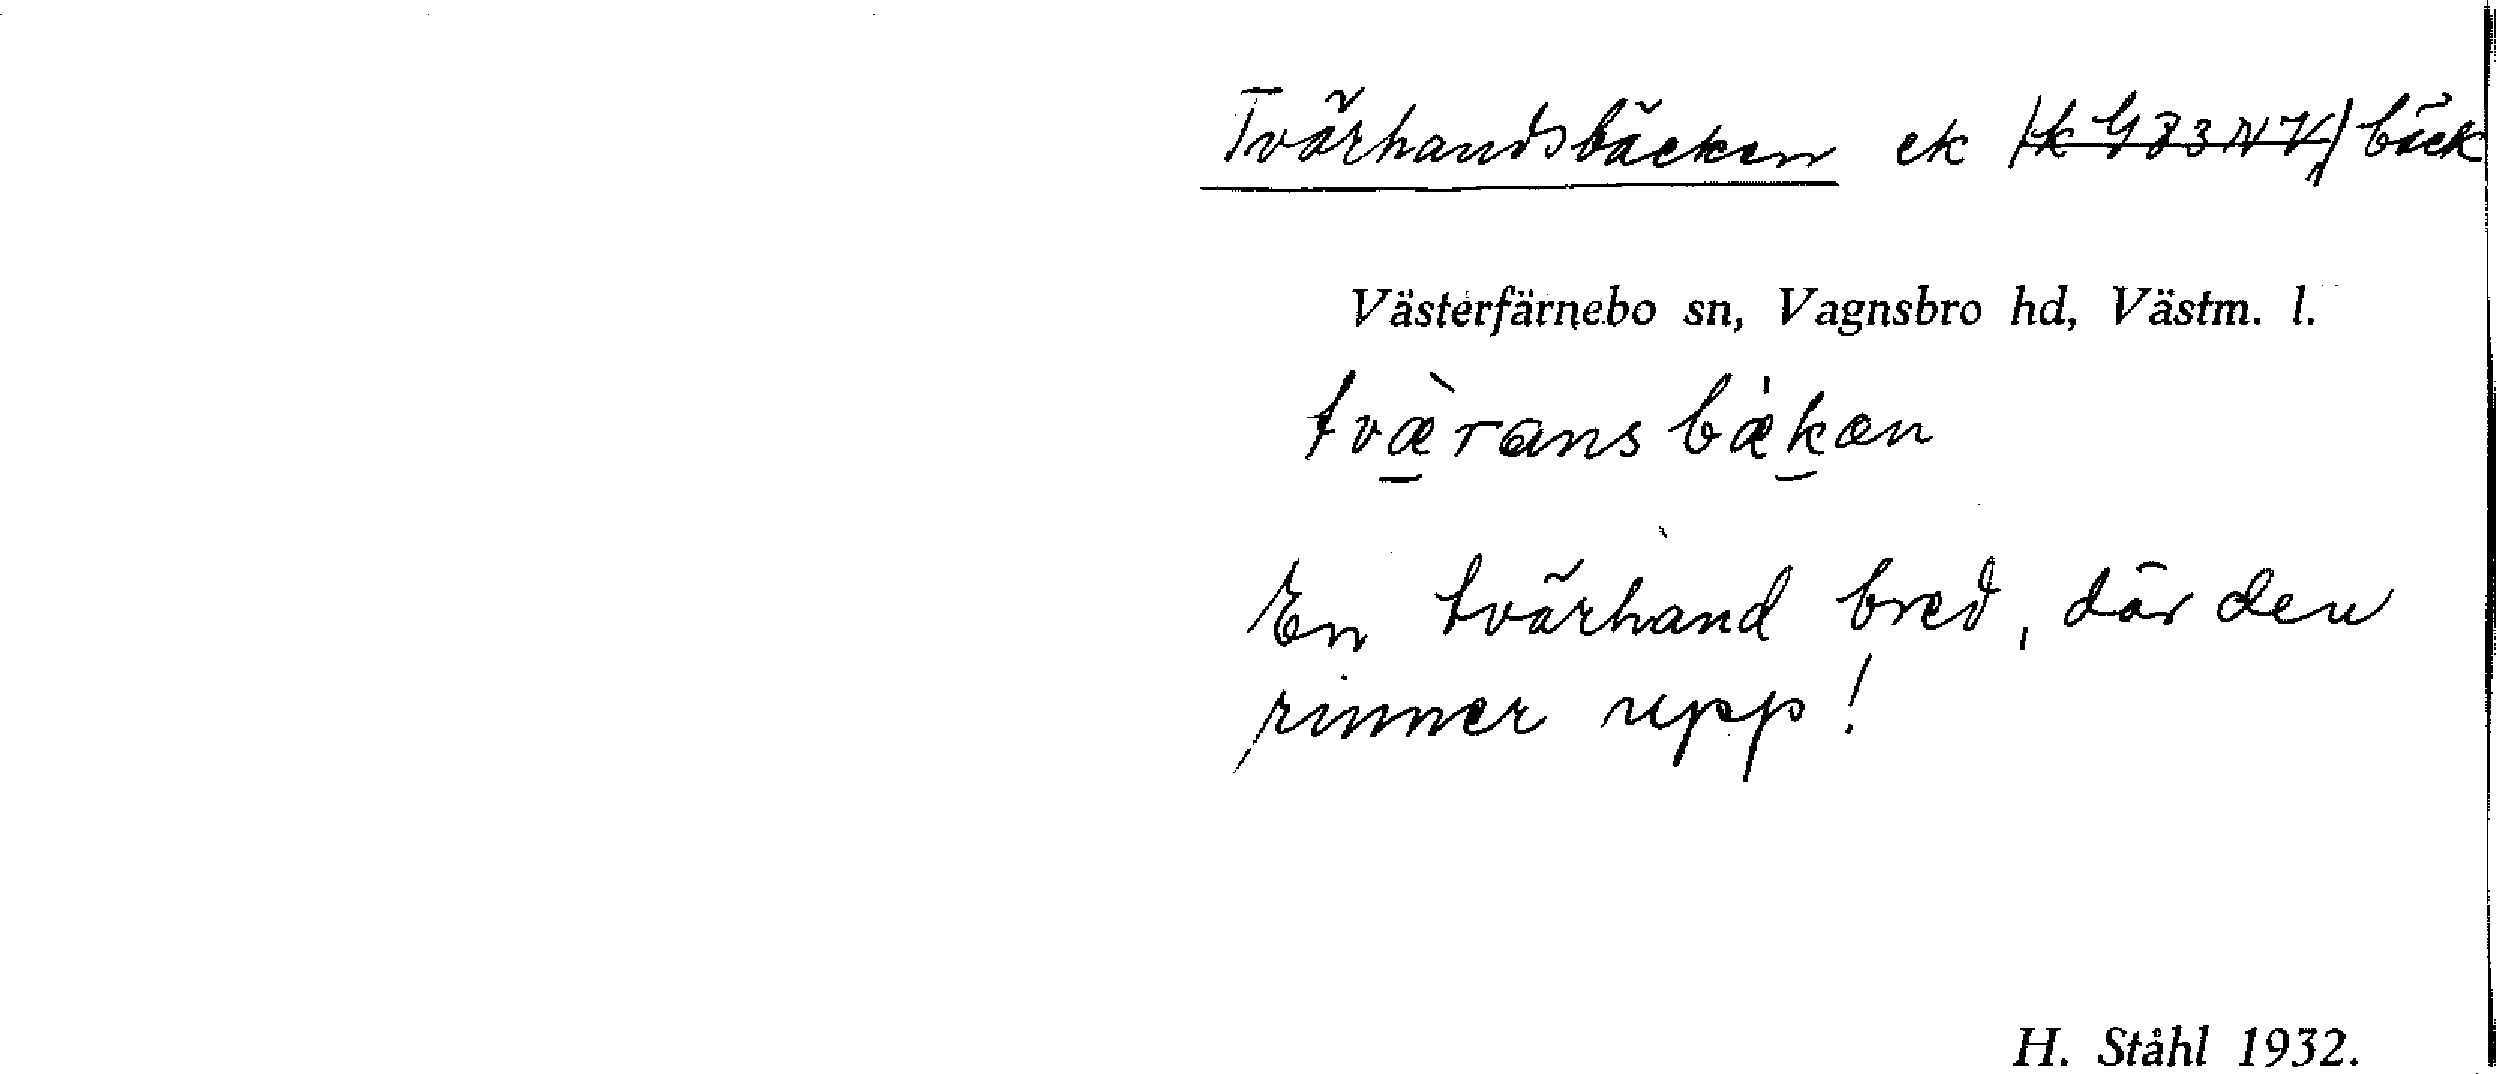 Tvärhandsbäcken ek (k G 3 3 N V) bäck
Västerfärnebo sn, Vagnsbro hd, Västm. l.
tvæ̀ransbækæn
En tvärhand bred, där den
rinner upp!
H. Ståhl 1932.